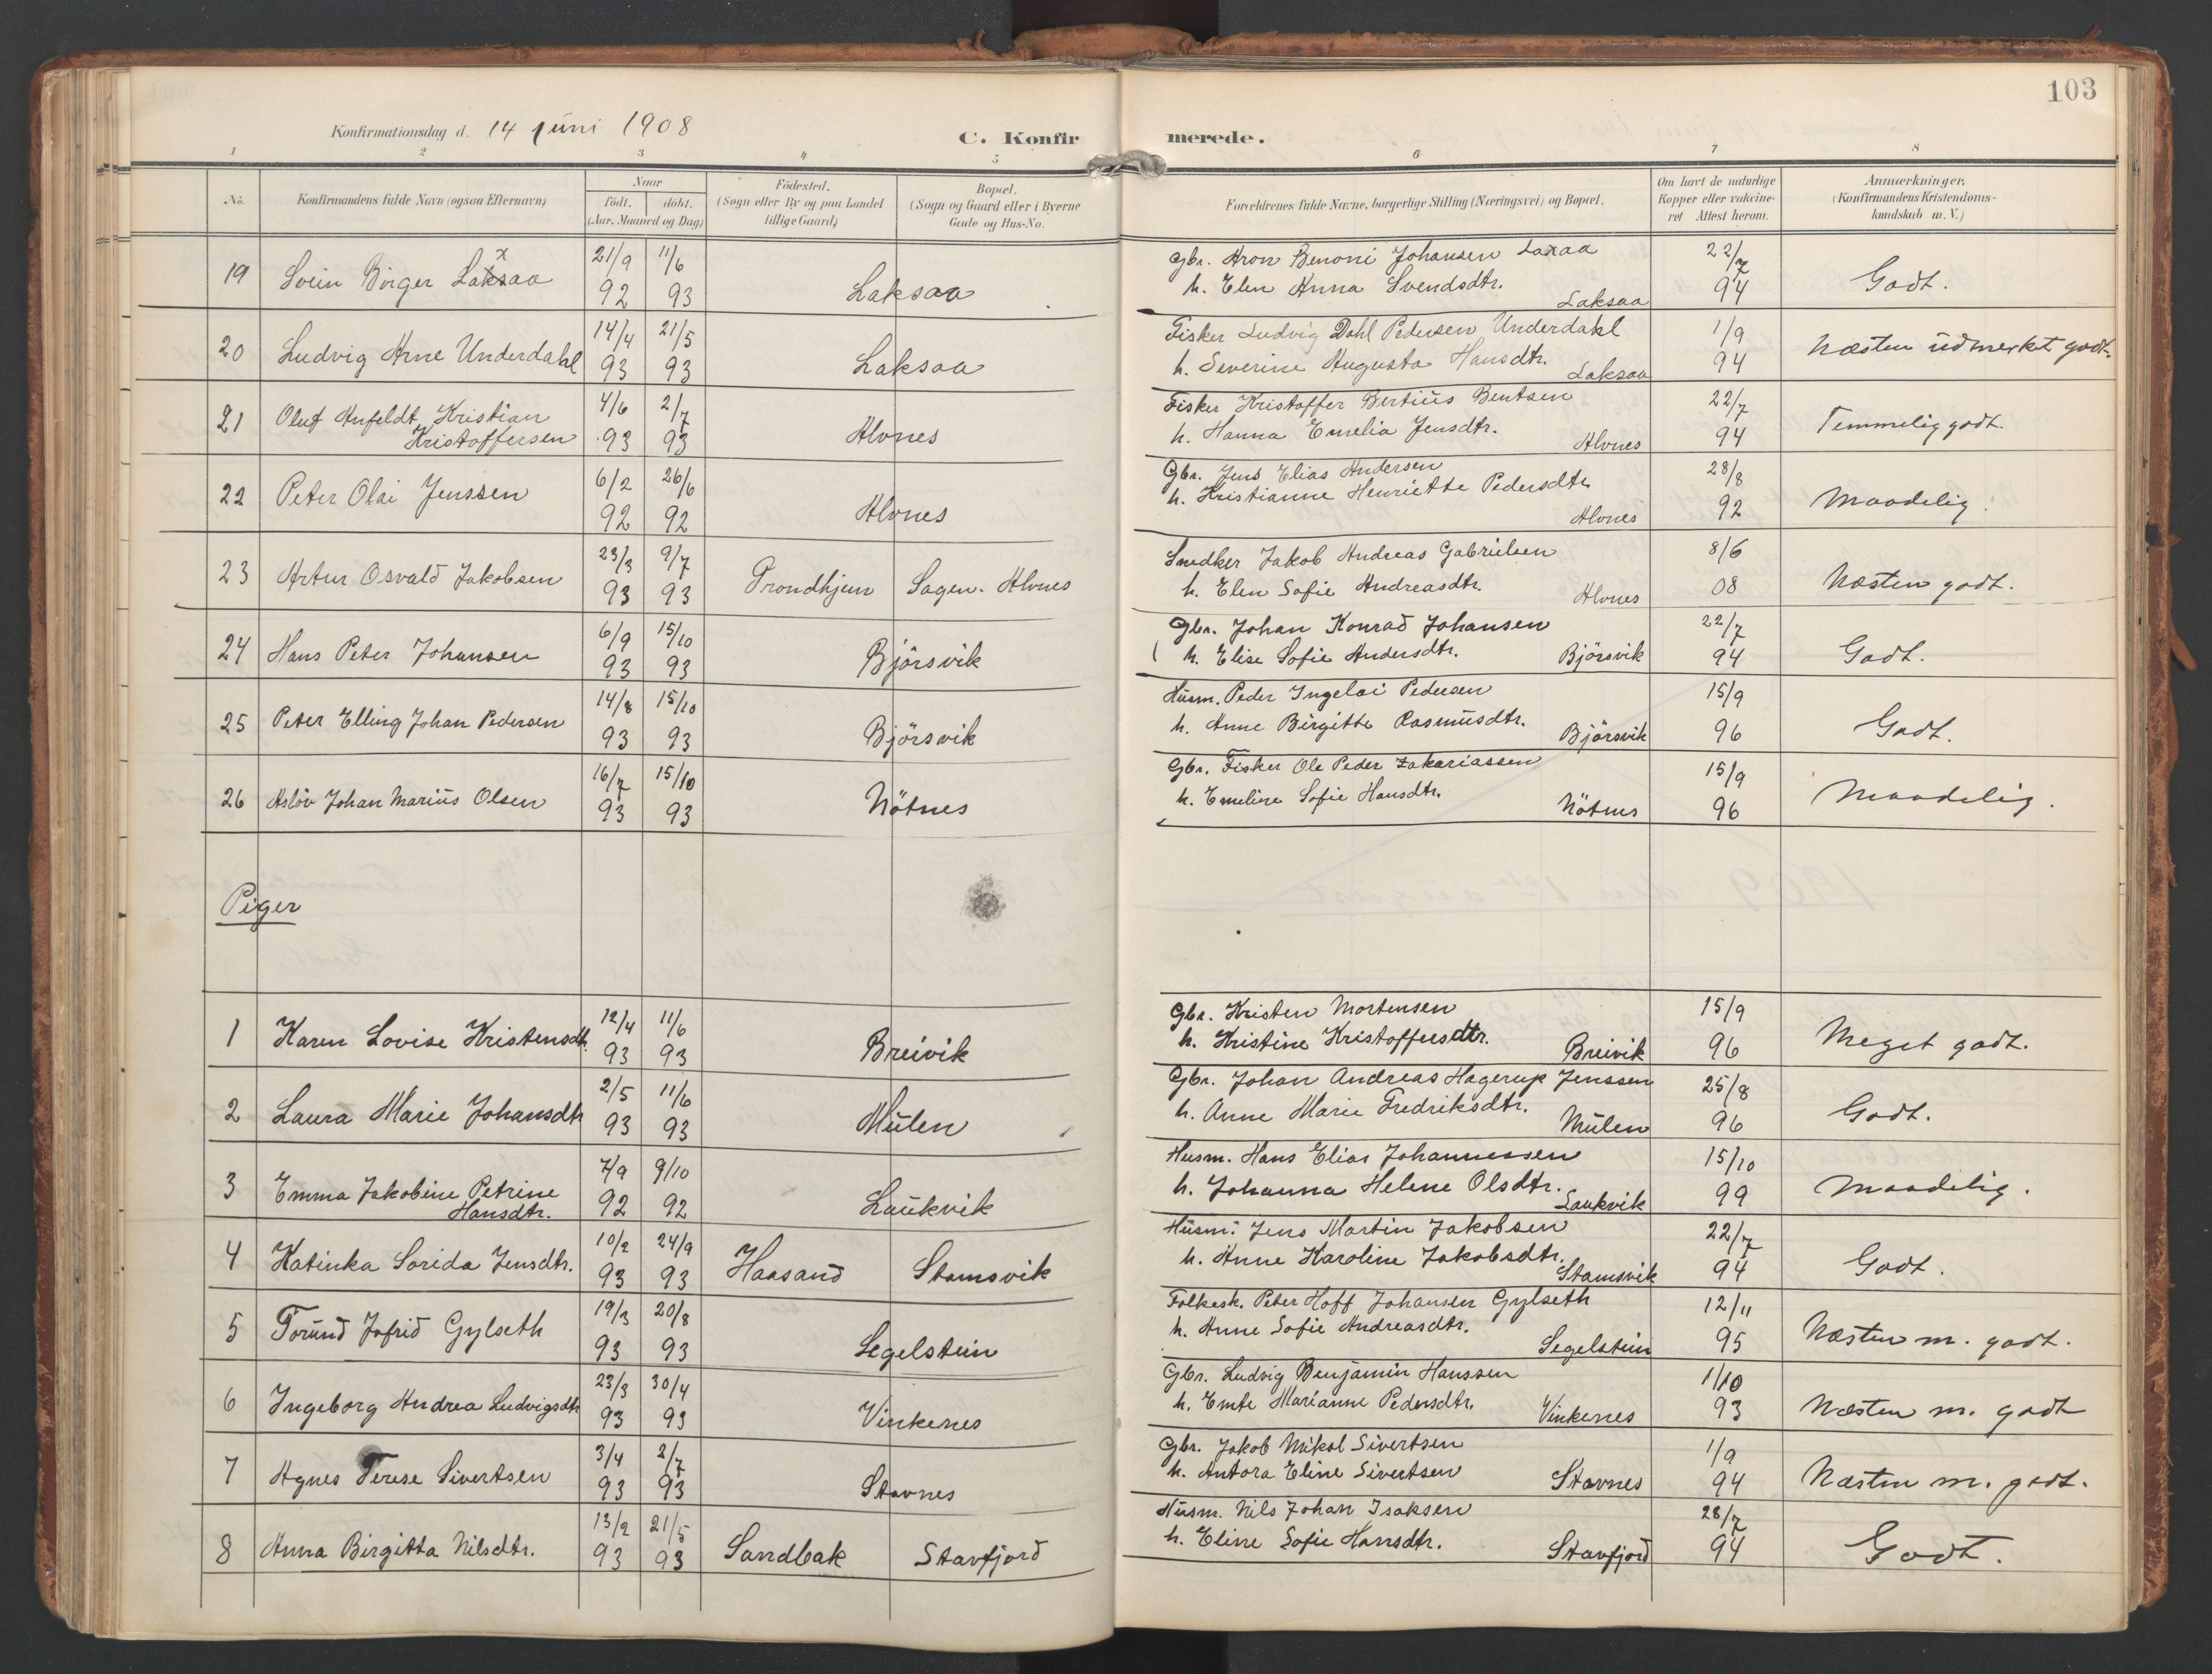 103
Konfirmationsdag d. 14 juni 1908
C. Konfirmerede.
1 2 3 4 5 6 7 8
No. Konfirmandens fulde Navn (ogsaa Efternavn) Naar födt. döbt. (Aar, Maaned og Dag) Födested. (Sogn eller By og paa Landet tillige Gaard) Bopæl. (Sogn og Gaard eller i Byerne Gade og Hus-No. Forældrenes fulde Navne, borgerlige Stilling (Næringsvei) og Bopæl. Om havt de naturlige Kopper eller vakcineret Attest herom. Anmærkninger. (Konfirmandens Kristendomskundskab m. V.)
19 Svein Birger Laksaa x 21/9 92 11/6 93 Laksaa Gbr. Aron Benoni Johansen Laxaa 22/7 94 Godt.
h. Elen Anna Svendsdtr. Laksaa
20 Ludvig Arne Underdahl 14/4 93 21/5 93 Laksaa Fisker Ludvig Dahl Pedersen Underdahl 1/9 94 Næsten udmerket godt.
h. Severine Augusta Hansdtr. Laksaa
21 Oluf Anfeldt Kristian Kristoffersen 4/6 93 2/7 93 Alvnes Fisker Kristoffer Bertius Bentsen 22/7 94 Temmelig godt.
h. Hanna Emelia Jensdtr. Alvnes
22 Peter Olai Jenssen 6/2 92 26/6 92 Alvnes Gbr. Jens Elias Andersen 28/8 92 Maadelig.
h. Kristianne Henriette Pedersdtr. Alvnes
23 Artur Osvald Jakobsen 23/3 93 9/7 93 Trondhjem Sagen. Alvnes Snedker Jakob Andreas Gabrielsen 8/6 08 Næsten godt.
h. Elen Sofie Andreasdtr. Alvnes
24 Hans Peter Johansen 6/9 93 15/10 93 Björsvik Gbr. Johan Konrad Johansen 22/7 94 Godt.
h. Elise Sofie Andersdtr. Björsvik
25 Peter Elling Johan Pedersen 14/8 93 15/10 93 Björsvik Husm. Peder Ingelai Pedersen 15/9 96 Godt.
h. Anne Birgitte Rasmusdtr. Björsvik
26 Aslöv Johan Marius Olsen 16/7 93 15/10 93 Nötnes Gbr. Fisker Ole Peder Zakariassen 15/9 96 Maadelig.
h. Emeline Sofie Hansdtr. Nötnes
Piger
1 Karen Lovise Kristensdtr. 12/4 93 11/6 93 Breivik Gbr. Kristen Mortensen 15/9 96 Meget godt.
h. Kristine Kristoffersdtr. Breivik
2 Laura Marie Johansdtr 2/5 93 11/6 93 Mulen Gbr. Johan Andreas Hagerup Jenssen 25/8 96 Godt.
h. Anne Marie Fredriksdtr. Mulen
3 Emma Jakobine Petrine Hansdtr. 7/9 92 9/10 92 Laukvik Husm. Hans Elias Johannessen 15/10 99 Maadelig.
h. Johanna Helene Olsdtr. Laukvik
4 Katinka Sorida Jensdtr. 10/2 93 24/9 93 Haasand Stamsvik Husm. Jens Martin Jakobsen 22/7 94 Godt.
h. Anne Karoline Jakobsdtr. Stamsvik
5 Torund Jofrid Gylseth 19/3 93 20/8 93 Segelstein Folkesk. Peter Hoff Johansen Gylseth 12/11 95 Næsten m. godt.
h. Anne Sofie Andreasdtr. Segelstein
6 Ingeborg Andrea Ludvigsdtr 23/3 93 30/4 93 Vinkenes Gbr. Ludvig Benjamin Hanssen 1/10 93 Næsten m. godt
h. Emte Marianne Pedersdtr. Vinkenes
7 Agnes Terese Sivertsen 3/4 93 2/7 93 Stavnes Gbr. Jakob Nikol Sivertsen 1/9 94 Næsten m. godt.
h. Antora Eline Sivertsen Stavnes
8 Anna Birgitta Nilsdtr. 13/2 93 21/5 93 Sandbak Stavfjord Husm. Nils Johan Isaksen 28/7 94 Godt.
h. Eline Sofie Hansdtr. Stavfjord